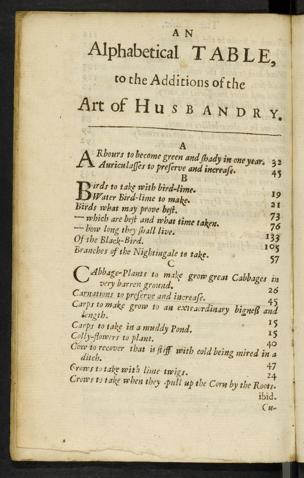 AN
Alphabetical TABLE,
to the Additions of the
Art of HUSBANDRY.
A
ARbours to become green and shady in one year. 32
Auriculasses to preserve and increase. 45
B
BIrds to take with bird-lime. 19
Water Bird-lime to make. 21
Birds what may prove best. 73
—which are best and what time taken. 76
—how long they shall live. 133
Of the Black-Bird. 105
Branches of the Nightingale to take. 57
C
CAbbage-Plants to make grow great Cabbages in
very barren ground. 26
Carnations to preserve and increase. 45
Carps to make grow to an extraordinary bigness and
length. 15
Carps to take in a muddy Pond. 15
Colly-flowers to plant. 40
Cow to recover that is stiff with cold being mired in a
ditch. 47
Crows to take with lime twigs. 24
Crows to take when they pull up the Corn by the Roots.
ibid.
Cu-